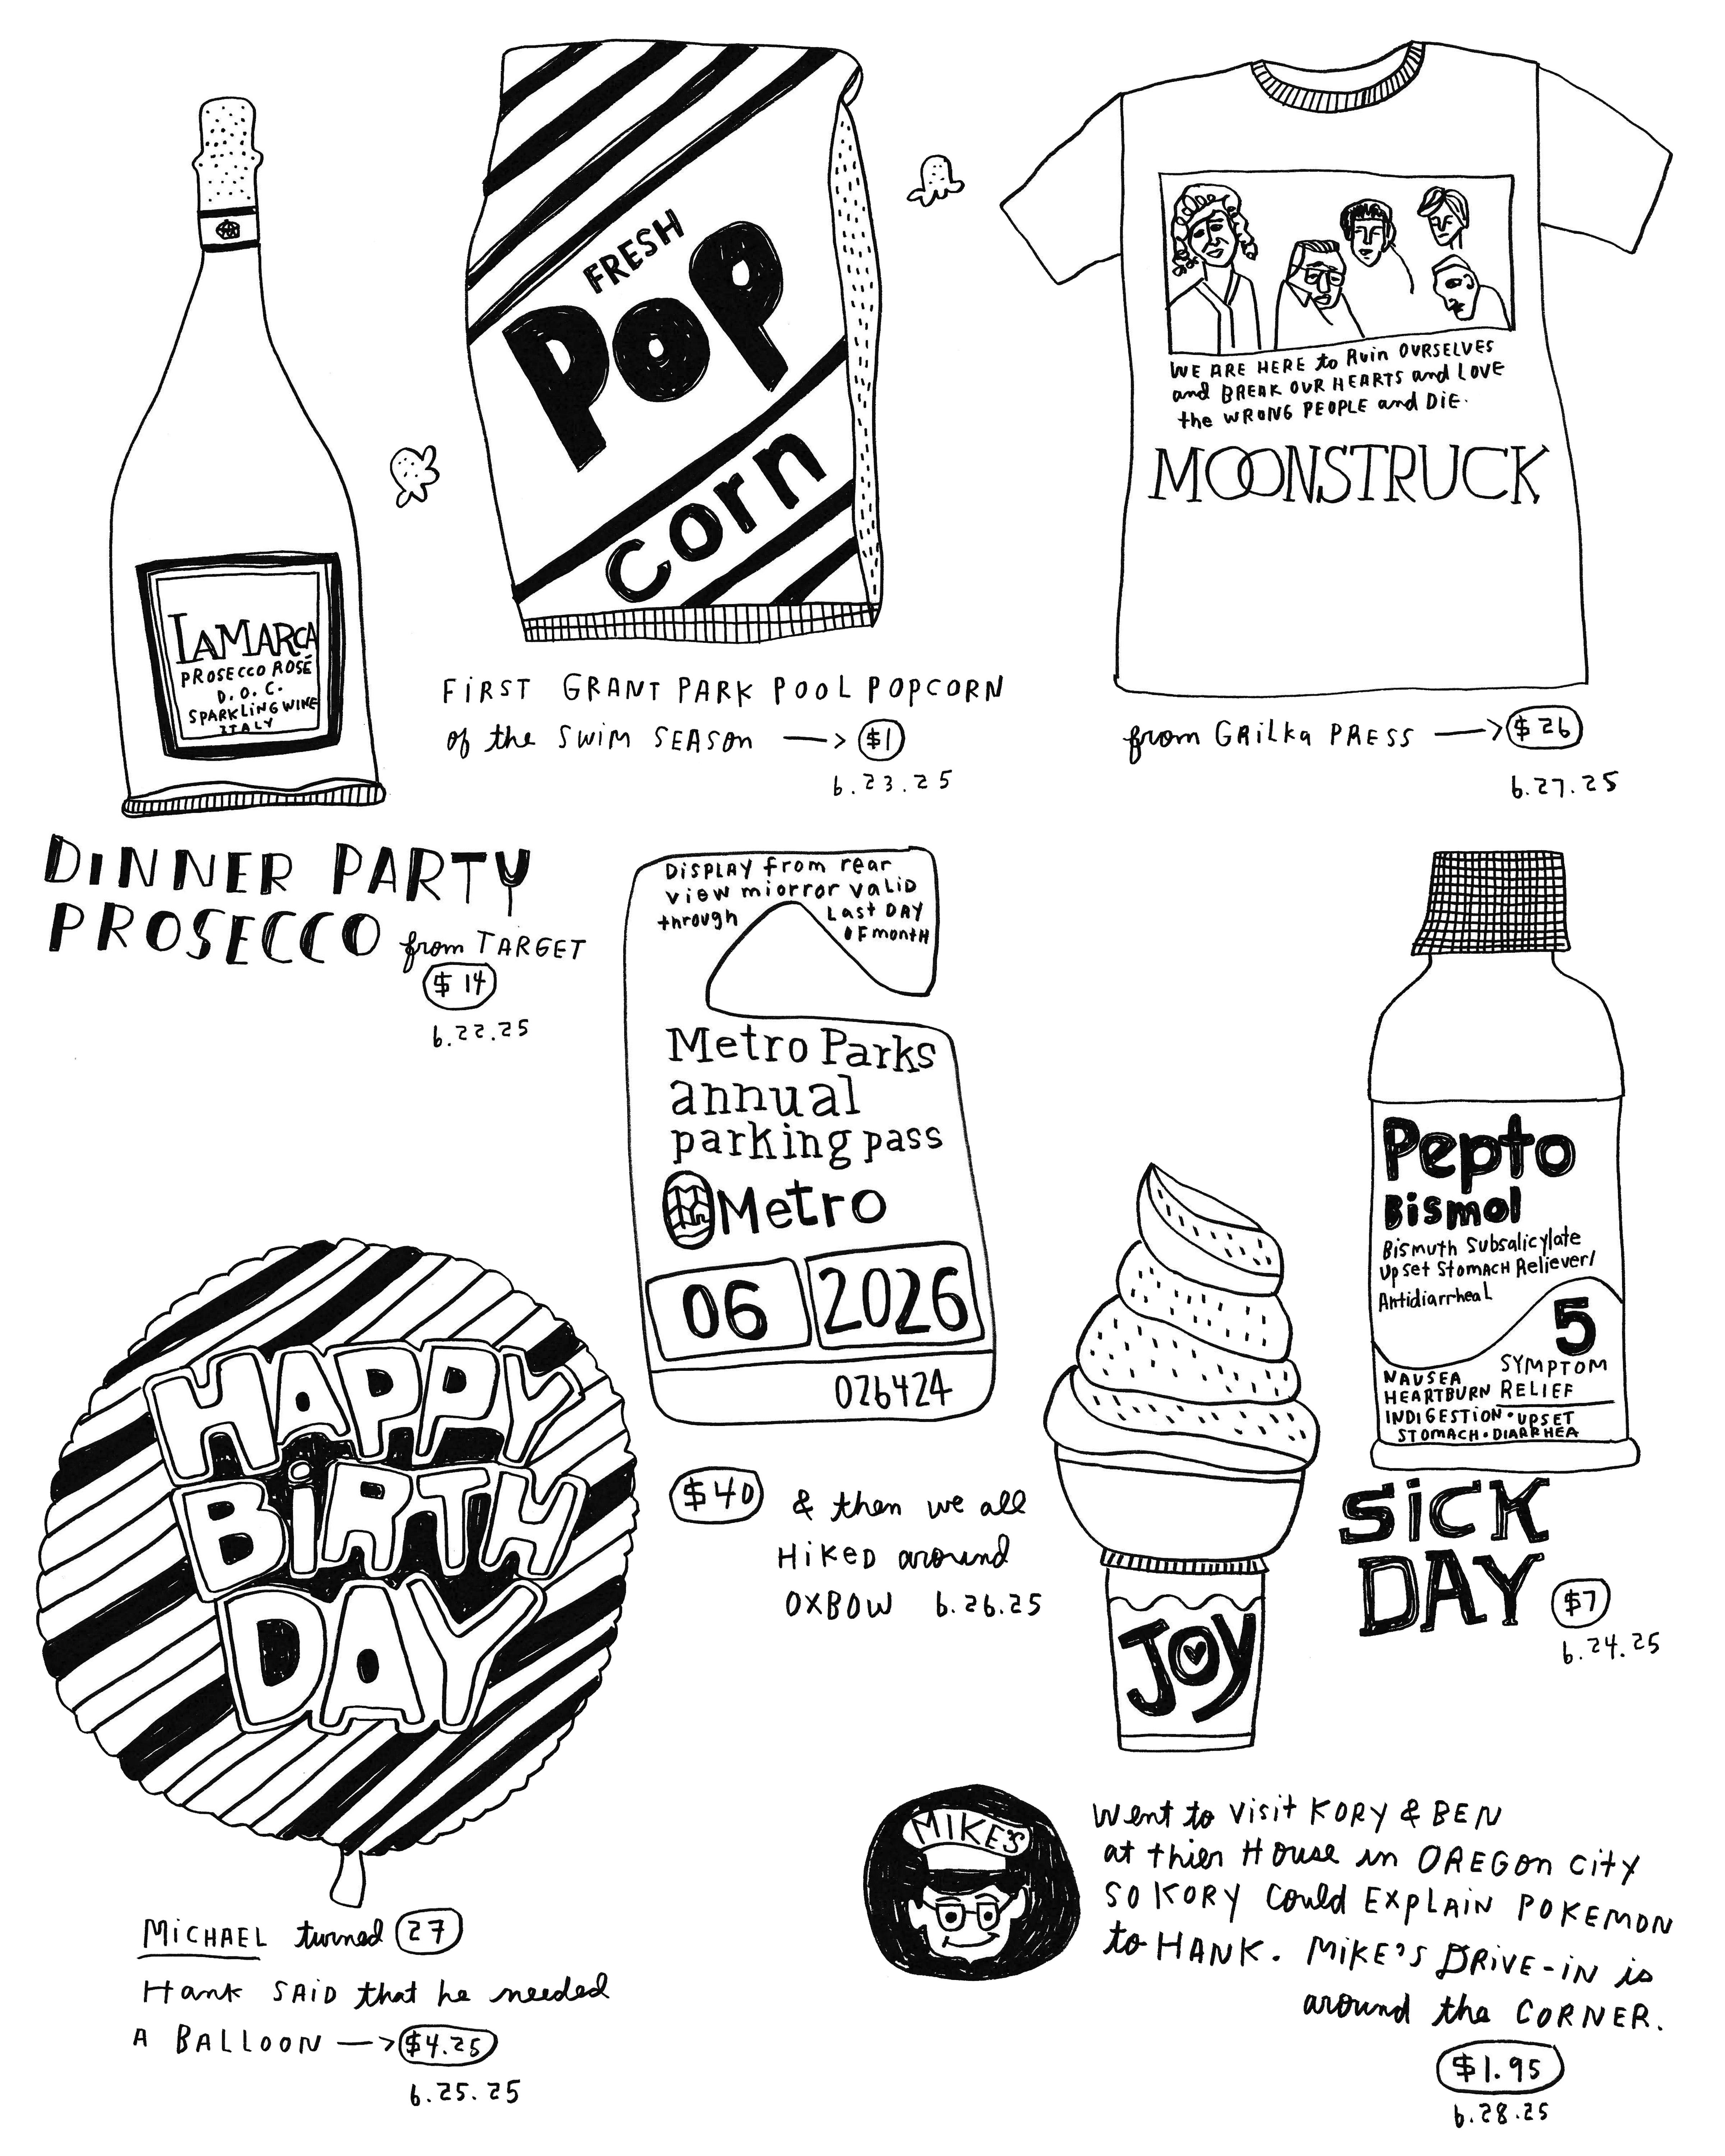 LAMARCA
PROSECCO ROSÉ
D.O.C.
SPARKLING WINE
ITALY
DINNER PARTY
PROSECCO from TARGET
$14
6.22.25
FRESH
POP
corn
FIRST GRANT PARK POOL POPCORN
of the SWIM SEASON —> $1
6.23.25
WE ARE HERE to Ruin OURSELVES
and BREAK OUR HEARTS and LOVE
the WRONG PEOPLE and DIE.
MOONSTRUCK
from GRILKA PRESS —> $26
6.27.25
DISPLAY from rear
view miorror VALID
through Last DAY
OF month
Metro Parks
annual
parking pass
Metro
06 2026
026424
$40 & then we all
HIKED around
OXBOW 6.26.25
Pepto
Bismol
Bismuth Subsalicylate
Upset Stomach Reliever/
Antidiarrheal
5
SYMPTOM
RELIEF
NAUSEA
HEARTBURN
INDIGESTION • UPSET
STOMACH • DIARRHEA
SICK
DAY $7
6.24.25
HAPPY
BIRTH
DAY
MICHAEL turned 27
Hank SAID that he needed
A BALLOON —> $4.25
6.25.25
JOY
MIKE'S
Went to visit KORY & BEN
at thier House in OREGON CITY
SO KORY could EXPLAIN POKEMON
to HANK. MIKE'S DRIVE-IN is
around the CORNER.
$1.95
6.28.25